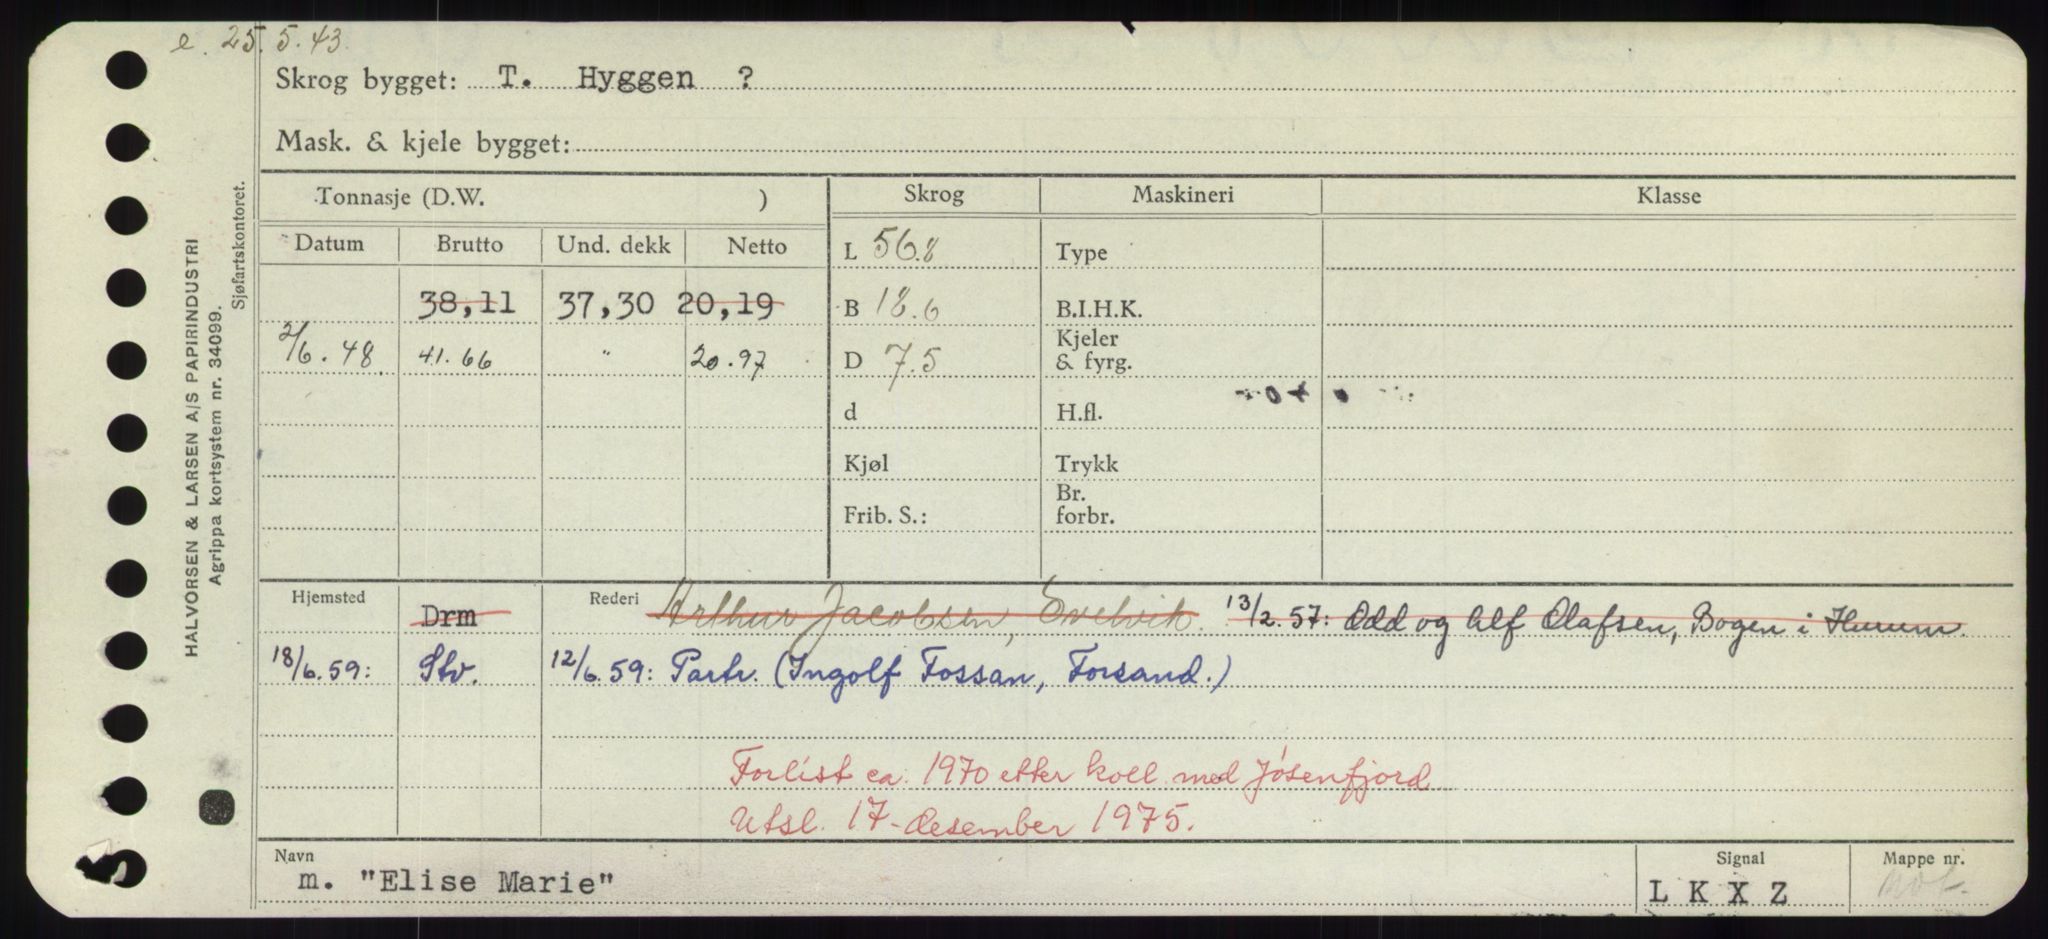 e. 25.5.43.
Skrog bygget: T. Hyggen ?
Mask. & kjele bygget:
HALVORSEN & LARSEN A/S PAPIRINDUSTRI
Agrippa kortsystem nr. 34099.
Sjøfartskontoret.
Tonnasje (D.W. ) Skrog Maskineri Klasse
Datum Brutto Und. dekk Netto L 56.8 Type
38,11 37,30 20,19 B 18.6 B.I.H.K.
2/6.48. 41.66 " 20.97 D 7.5 Kjeler & fyrg.
d H.fl.
Kjøl Trykk
Frib. S.: Br. forbr.
Hjemsted Drm Rederi Arthur Jacobsen, Svelvik. 13/2.57: Odd og Alf Olafsen, Bogen i Hurum.
18/6.59: Stv. 12/6.59: Partr. (Ingolf Fossan, Forsand.)
Forlist ca. 1970 etter koll. med Jøsenfjord
Utsl. 17. desember 1975.
Navn Signal Mappe nr.
m. "Elise Marie" L K X Z